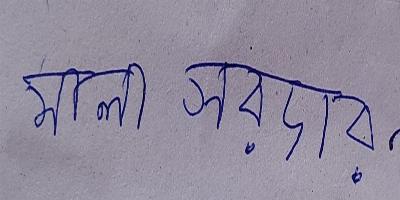 মালা সরদার